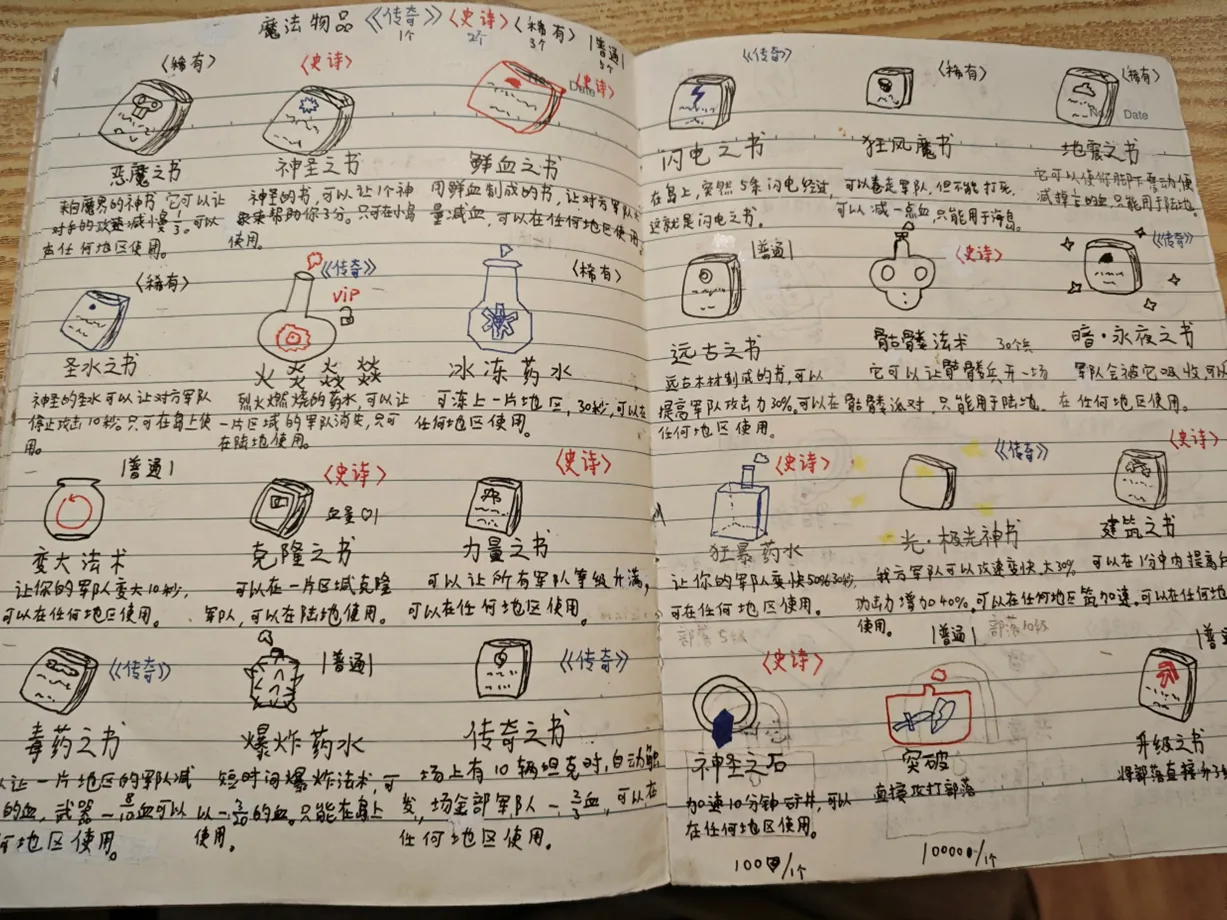 魔法物品 《传奇》〈史诗〉〈稀有〉|普通|
1个 2个 3个 5个
〈稀有〉 〈史诗〉 〈史诗〉
恶魔之书 神圣之书 鲜血之书
来自魔界的神书,它可以让
对手的攻速减慢1/3。可以
在任何地区使用。
神圣的书,可以让1个神
来帮助你3分。只可在小岛
使用。
用鲜血制成的书,让对方军队
量减血,可以在任何地区使用。
〈稀有〉 《传奇》 〈稀有〉
VIP
圣水之书 火 炎 焱 燚 冰冻药水
神圣的圣水可以让对方军队
停止攻击10秒。只可在岛上使
用。
烈火燃烧的药水,可以让
一片区域的军队消失,只可
在陆地使用。
可冻上一片地区,30秒,可以在
任何地区使用。
|普通| 〈史诗〉 〈史诗〉
血量♡1
变大法术 克隆之书 力量之书
让你的军队变大10秒,
可以在任何地区使用。
可以在一片区域克隆
军队,可以在陆地使用。
可以让所有军队等级升满,
可以在任何地区使用。
《传奇》 |普通| 《传奇》
毒药之书 爆炸药水 传奇之书
以让一片地区的军队减
的血,武器-8/10血可以
可地区使用。
短时间爆炸法术,可
以-3/20的血。只能在岛上
使用。
场上有10辆坦克时,自动触
发,场全部军队-2/3血,可以在
任何地区使用。
《传奇》 〈稀有〉 〈稀有〉
No. Date
闪电之书 狂风魔书 地震之书
在岛上,突然5条闪电经过,
这就是闪电之书。
可以卷走军队,但不能打死,
可以减一点血,只能用于海岛。
它可以使你脚下震动,使
减掉的血,只能用于陆地。
|普通| 〈史诗〉 《传奇》
远古之书 骷髅法术 30个兵 暗·永夜之书
远古木材制成的书,可以
提高军队攻击力30%。可以在
任何地区使用。
它可以让骷髅兵开一场
骷髅派对,只能用于陆地。
军队会被它吸收,可以
在任何地区使用。
〈史诗〉 《传奇》 〈史诗〉
狂暴药水 光·极光神书 建筑之书
让你的军队变快50%30秒,
可在任何地区使用。
我方军队可以攻速变快,大30%
功击力增加40%。可以在任何地区
使用。
可以在1分钟内提高
筑加速。可以在任何地
部落5级 部落10级
〈史诗〉 |普通| |普通
神圣之石 突破 升级之书
加速10分钟,可以
在任何地区使用。
直接攻打部落
将部落直接升
/1个
/1个